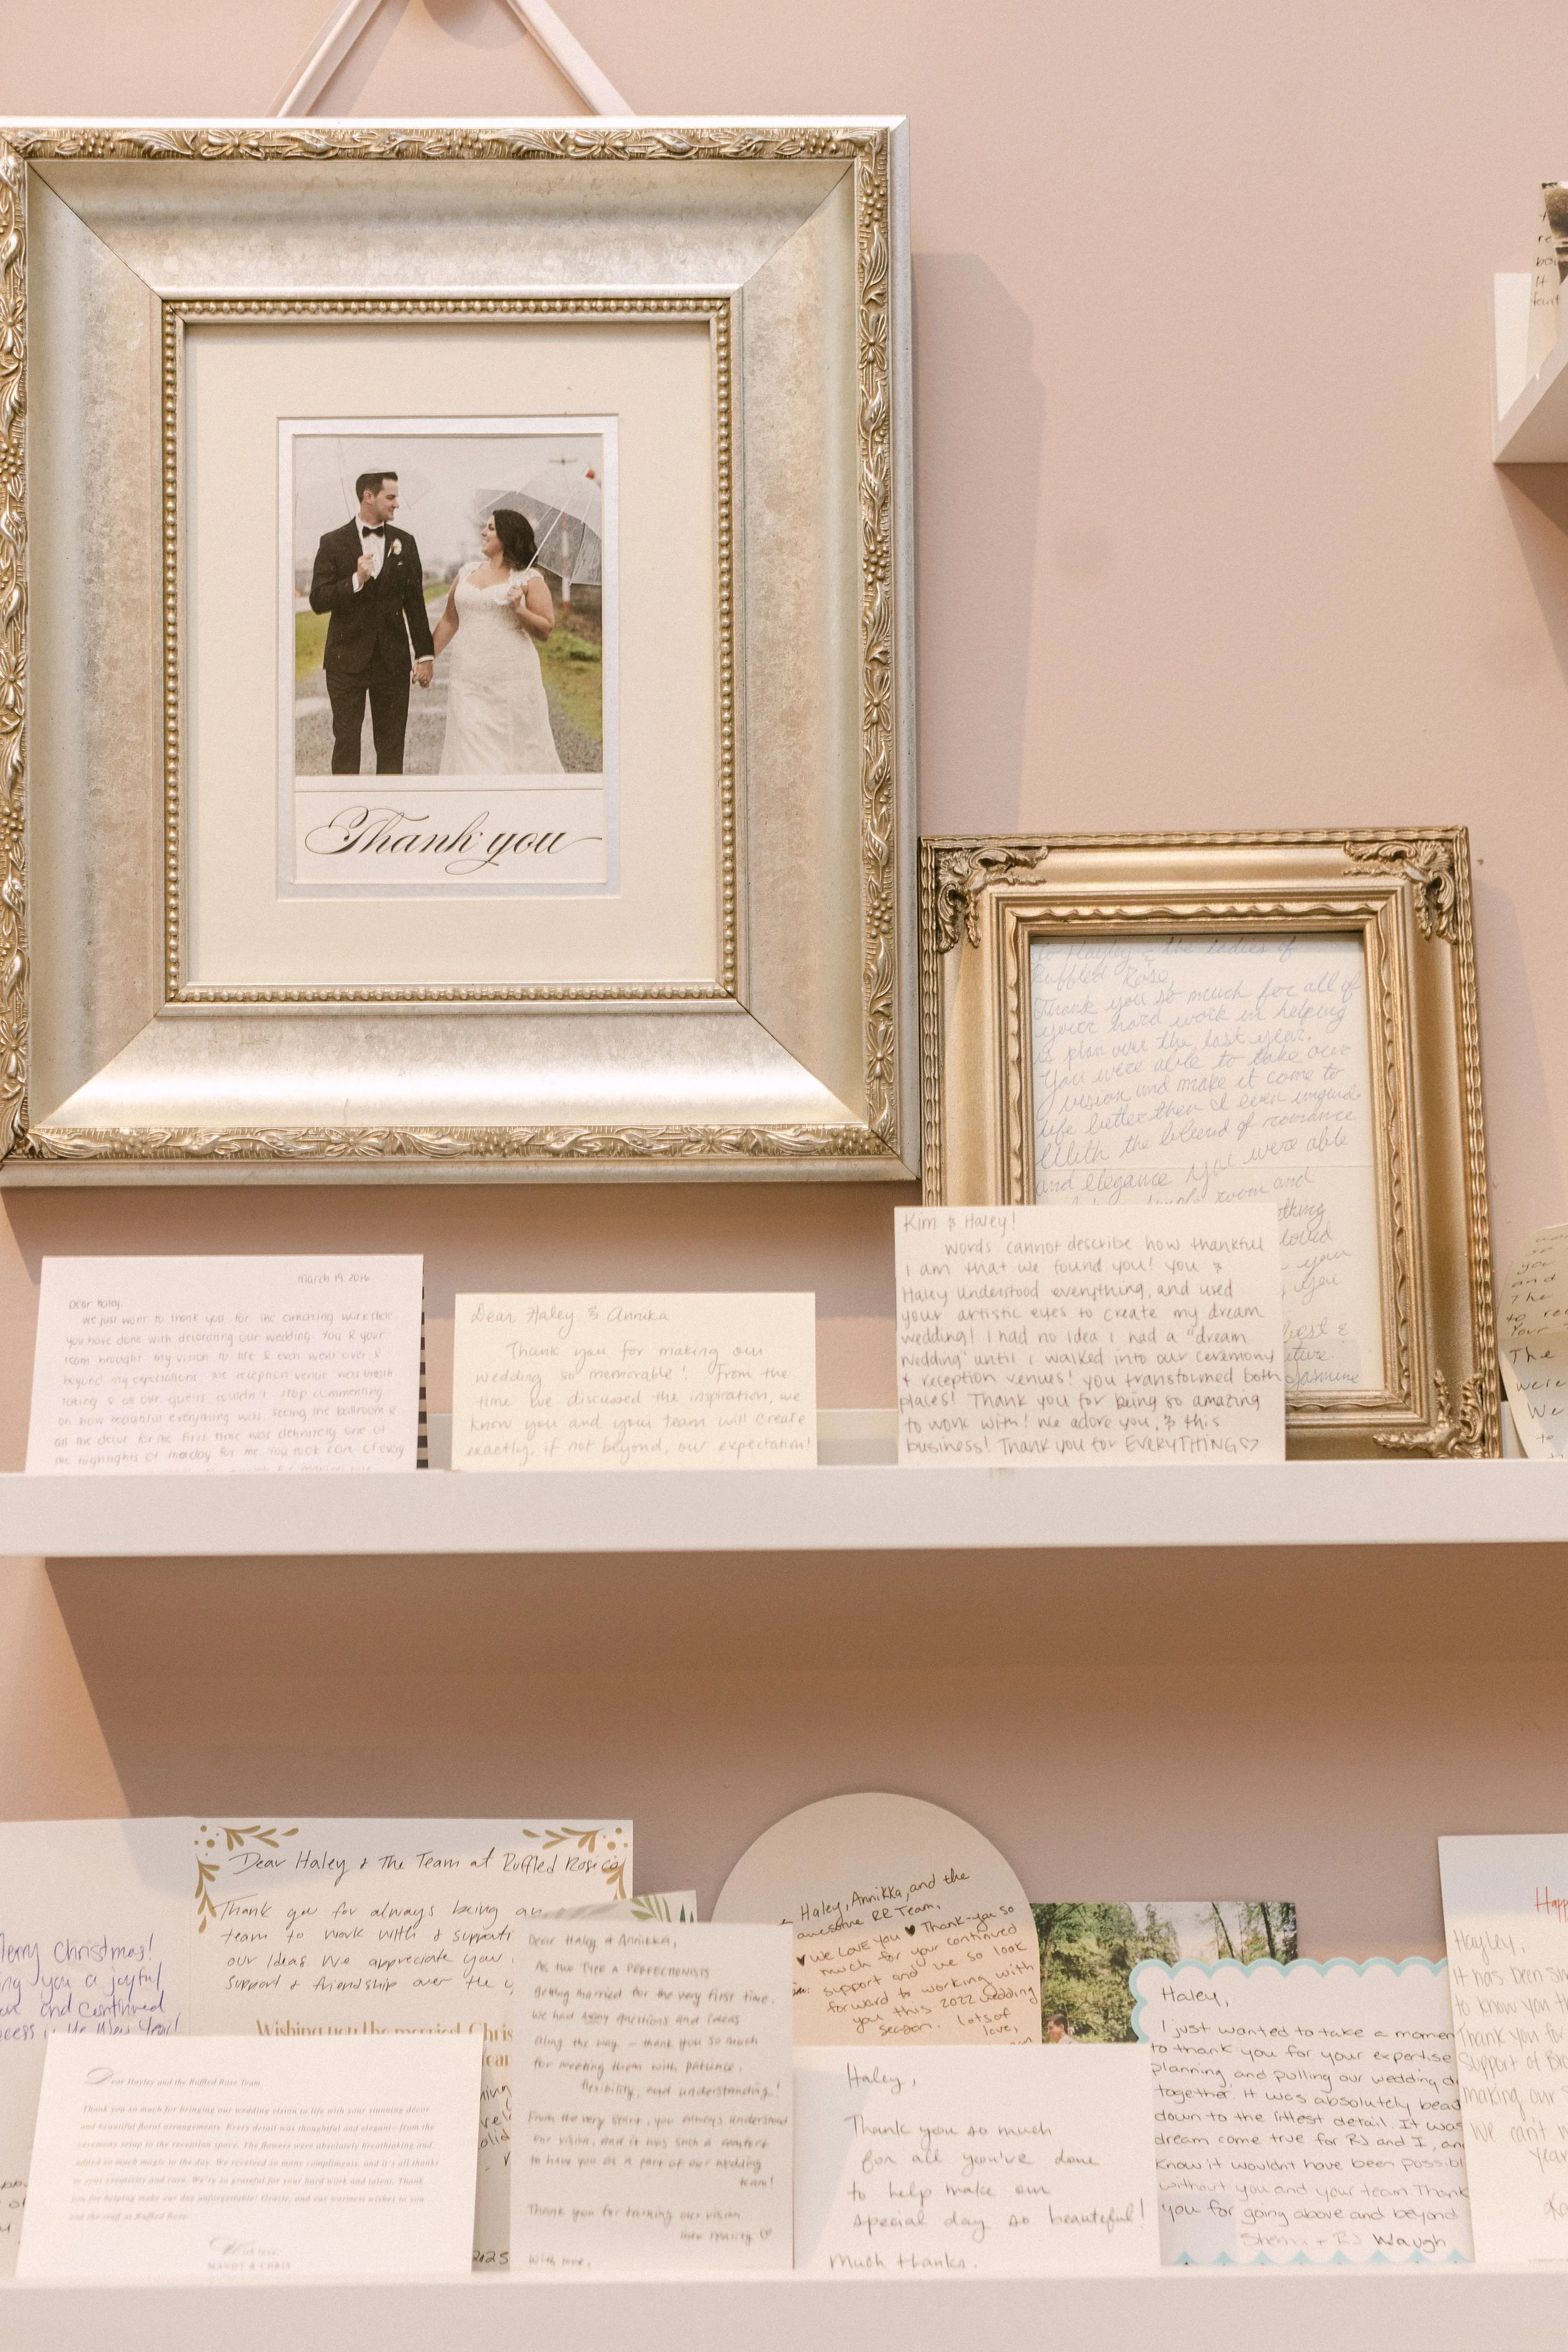 Thank you
to Hayley & the ladies of
Ruffled Rose,
Thank you so much for all of
your hard work in helping
us plan over the last year.
You were able to take our
vision and make it come to
life better then I even
With the blend of romance
and elegance you were able
room and
loved
you
you
best &
Jasmine
March 19, 2016
Dear Haley,
We just want to thank you for the amazing work that
you have done with decorating our wedding. You & your
team brought my vision to life & even went over &
beyond my expectations. The reception venue was breath
taking & all our guests couldn't stop commenting
on how beautiful everything was. Seeing the ballroom &
all the decor for the first time was definitely one of
the highlights of the day for me. You took care of every
Dear Haley & Annika
Thank you for making our
wedding so memorable! From the
time we discussed the inspiration, we
know you and your team will create
exactly, if not beyond, our expectation!
Kim & Haley!
Words cannot describe how thankful
I am that we found you! You &
Haley understood everything, and used
your artistic eyes to create my dream
wedding! I had no idea I had a "dream
wedding" until I walked into our ceremony
& reception venues! You transformed both
places! Thank you for being so amazing
to work with! We adore you & this
business! Thank you for EVERYTHING♡
you
and
The
to
Your
The
were
We
to
Merry Christmas!
you a joyful
and continued
the New Year!
Dear Haley & The Team at Ruffled Rose co
Thank you for always being an
team to work with & support
our ideas. We appreciate your
support & friendship over the
Wishing you the merri
2025
Dear Hayley and the Ruffled Rose Team
Thank you so much for bringing our wedding vision to life with your stunning décor
and beautiful floral arrangements. Every detail was thoughtful and elegant—from the
ceremony setup to the reception space. The flowers were absolutely breathtaking and
added so much magic to the day. We received so many compliments, and it's all thanks
to your creativity and care. We're so grateful for your hard work and talent. Thank
you for helping make our day unforgettable! Gracie, and our warmest wishes to you
and the staff at Ruffled Rose
With love,
MANDY & CHRIS
Dear Haley & Annikka,
As two TYPE A PERFECTIONISTS
getting married for the very first time,
we had many questions and ideas
along the way — thank you so much
for meeting them with patience,
flexibility, and understanding!
From the very start, you always understood
our vision, and it was such a comfort
to have you as a part of our wedding
team!
Thank you for turning our vision
into reality ♡
With love,
Haley, Annikka, and the
awesome RR Team,
♥ We love you ♥ Thank-you so
much for your continued
support and we so look
forward to working with
you this 2022 wedding
season. Lots of
love,
Haley,
Thank you so much
for all you've done
to help make our
special day so beautiful!
Much thanks.
Haley,
I just wanted to take a momen
to thank you for your expertise
planning, and pulling our wedding d
together. It was absolutely beau
down to the littlest detail. It was
dream come true for RJ and I, an
know it wouldn't have been possibl
without you and your team. Thank
you for going above and beyond
+ RJ Waugh
Happ
Hayley,
It has been su
to know you th
Thank you for
support of Br
making our
We can't w
Year